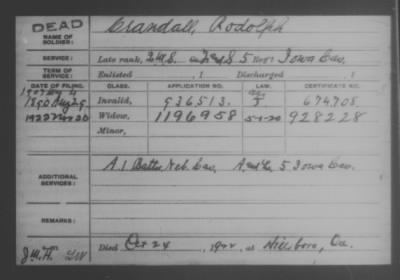 DEAD
NAME OF SOLDIER:
Crandall, Rodolph
SERVICE:
Late rank, 5 Reg't Iowa Cav.
TERM OF SERVICE:
Enlisted , 1 Discharged , 1
DATE OF FILING. CLASS. APPLICATION NO. LAW. CERTIFICATE NO.
1890 Aug 29 Invalid, 936513. 674,708.
1922 Nov 20 Widow, 1196958 5-1-20 928228
Minor,
ADDITIONAL SERVICES:
A. 1 Batt'n Neb. Cav, 5 Iowa Cav.
REMARKS:
Died Oct 24, 1922, at